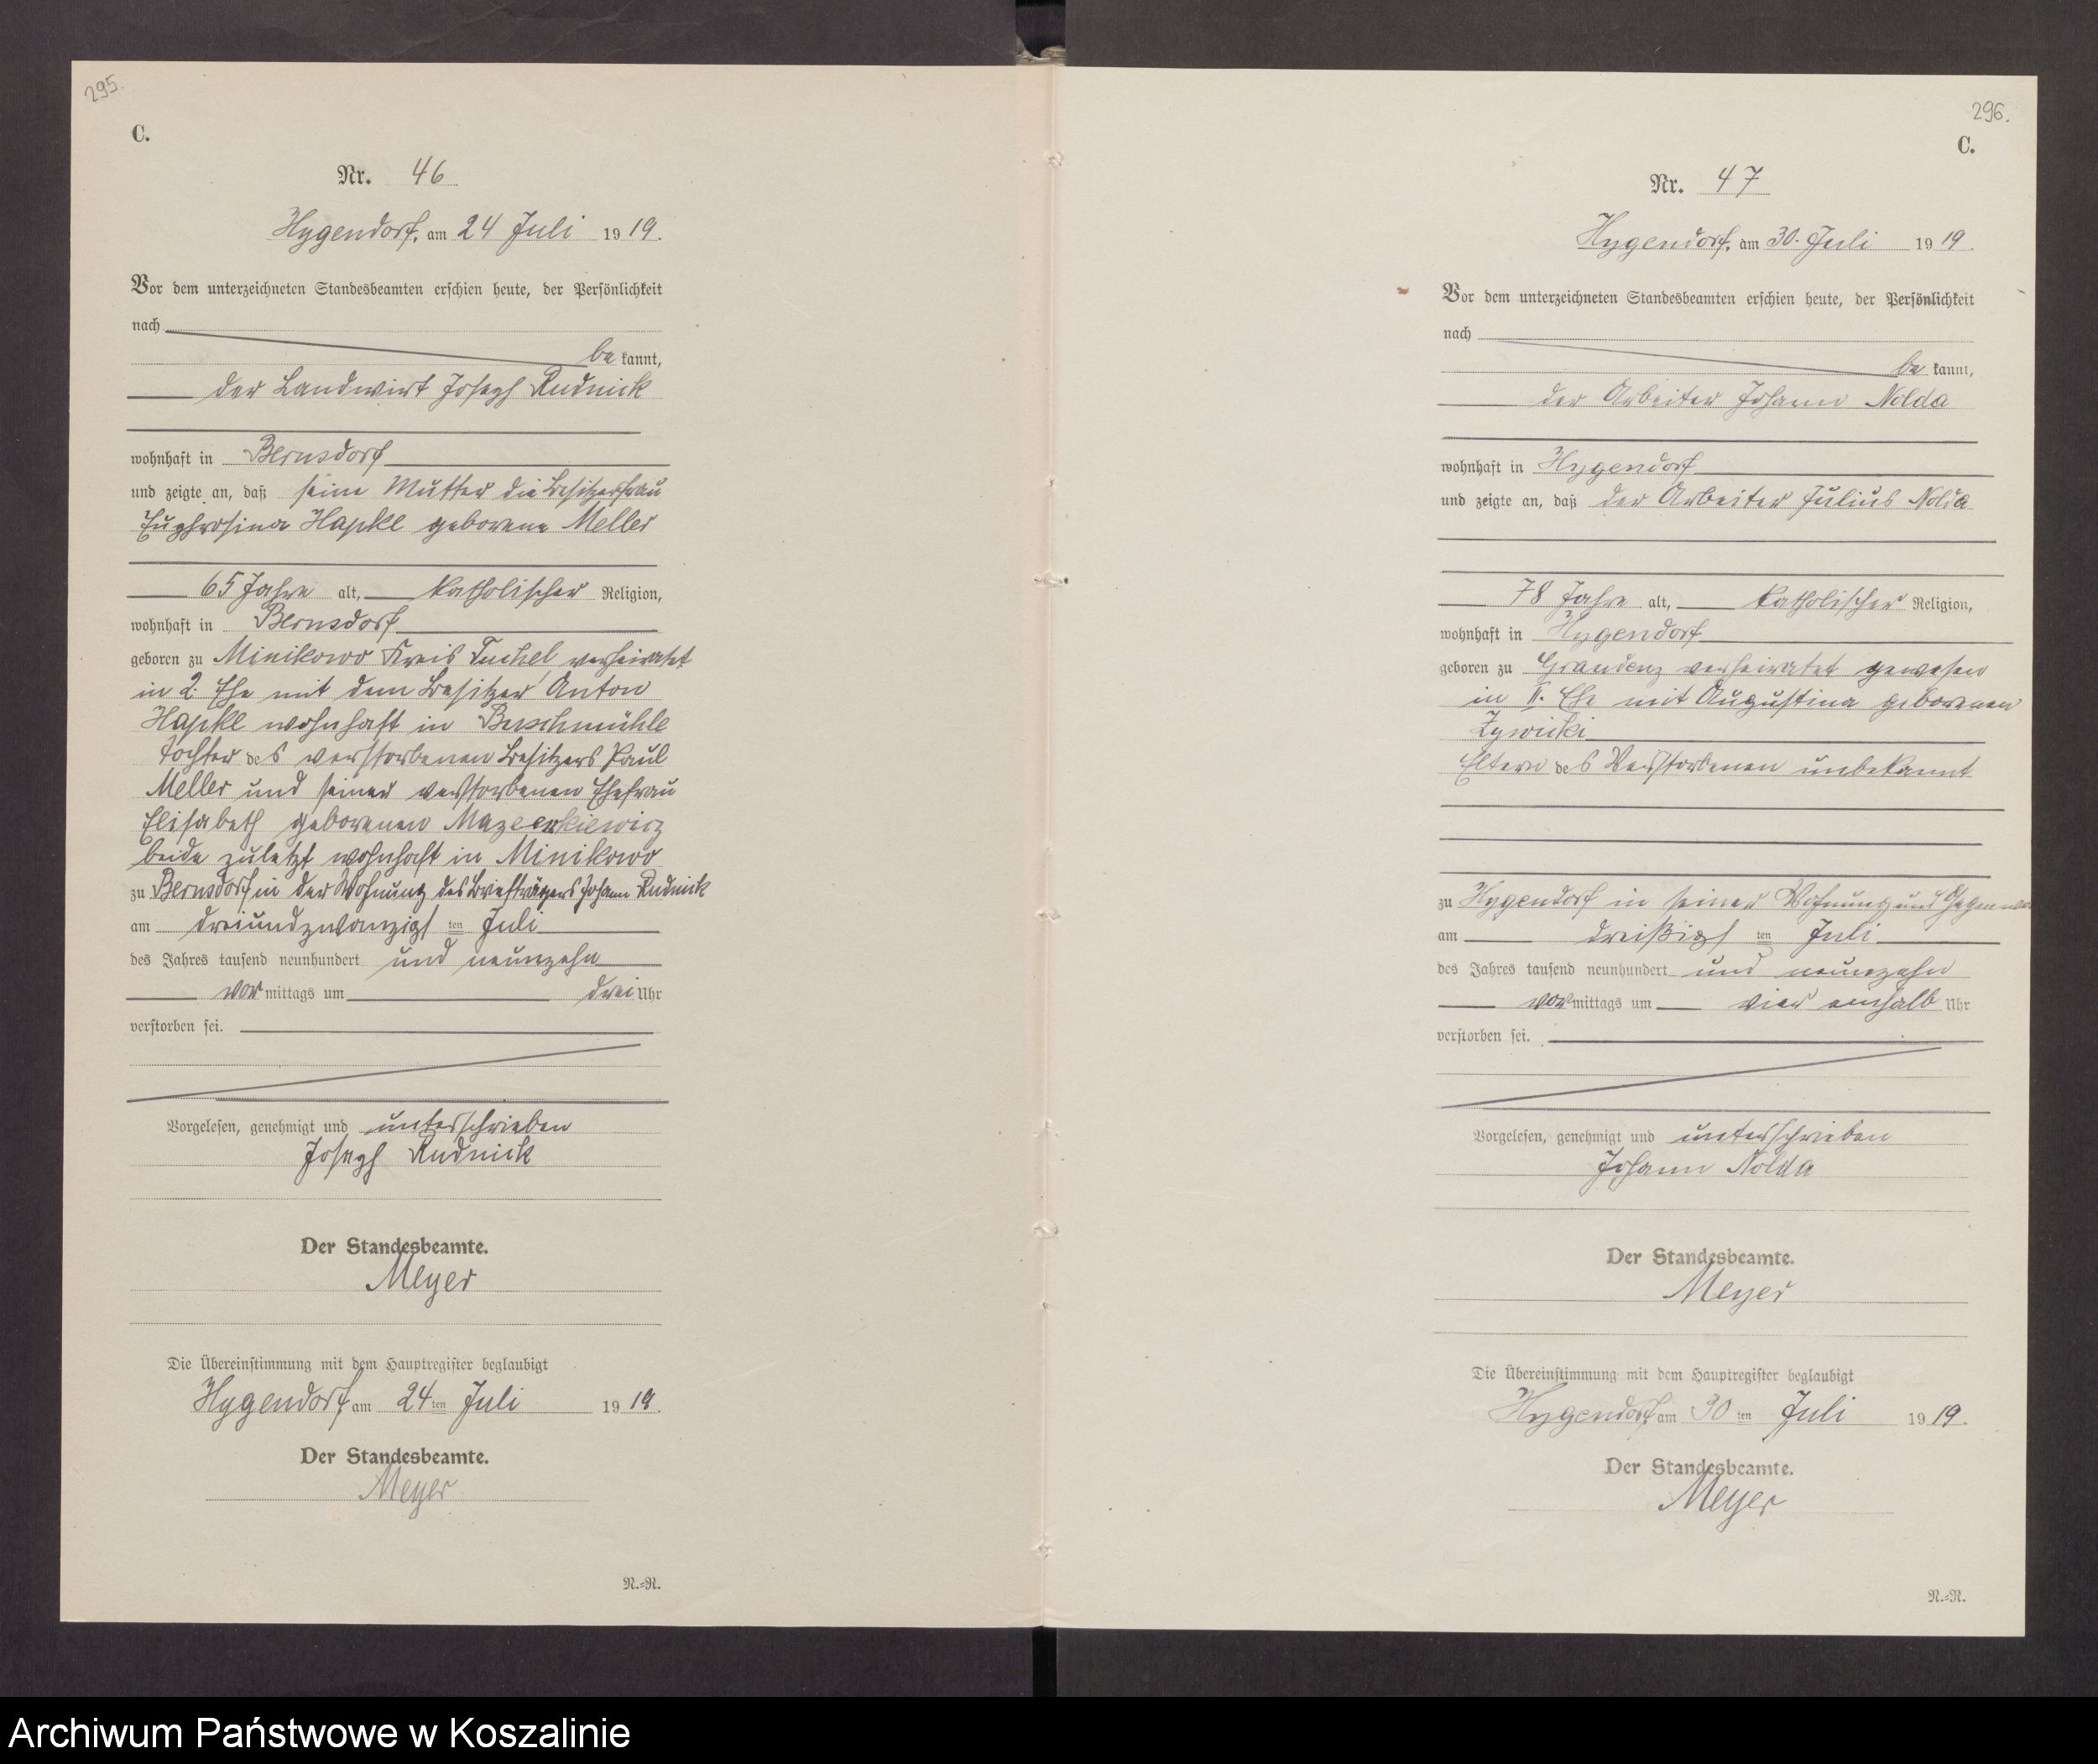 295.
C.
Nr. 46
Hygendorf, am 24 Juli 1919.
Vor dem unterzeichneten Standesbeamten erschien heute, der Persönlichkeit
nach
bekannt,
der Landwirt Joseph Rudnick
wohnhaft in Bernsdorf
und zeigte an, daß seine Mutter die Besitzerfrau
Euphrosina Hapke geborene Meller
65 Jahre alt, katholischer Religion,
wohnhaft in Bernsdorf
geboren zu Minikowo Kreis Tuchel verheiratet
in 2. Ehe mit dem Besitzer Anton
Hapke wohnhaft in Buschmühle
Tochter des verstorbenen Besitzers Paul
Meller und seiner verstorbenen Ehefrau
Elisabeth geborenen
beide zuletzt wohnhaft in Minikowo
zu Bernsdorf in der Wohnung des Briefträgers Johann Rudnick
am dreiundzwanzigsten Juli
des Jahres tausend neunhundert und neunzehn
vormittags um drei Uhr
verstorben sei.
Vorgelesen, genehmigt und unterschrieben
Joseph Rudnick
Der Standesbeamte.
Meyer
Die Übereinstimmung mit dem Hauptregister beglaubigt
Hygendorf am 24ten Juli 1919.
Der Standesbeamte.
Meyer
N.=R.
296.
C.
Nr. 47
Hygendorf, am 30. Juli 1919.
Vor dem unterzeichneten Standesbeamten erschien heute, der Persönlichkeit
nach
bekannt,
der Arbeiter Johann Nolda
wohnhaft in Hygendorf
und zeigte an, daß der Arbeiter Julius Nolda
78 Jahre alt, katholischer Religion,
wohnhaft in Hygendorf
geboren zu Graudenz verheiratet gewesen
in II. Ehe mit Augustina geborenen
Zywicki
Eltern des Verstorbenen unbekannt
zu Hygendorf in seiner Wohnung und
am dreißigsten Juli
des Jahres tausend neunhundert und neunzehn
vormittags um vier einhalb Uhr
verstorben sei.
Vorgelesen, genehmigt und unterschrieben
Johann Nolda
Der Standesbeamte.
Meyer
Die Übereinstimmung mit dem Hauptregister beglaubigt
Hygendorf am 30ten Juli 1919.
Der Standesbeamte.
Meyer
N.=R.
Archiwum Państwowe w Koszalinie